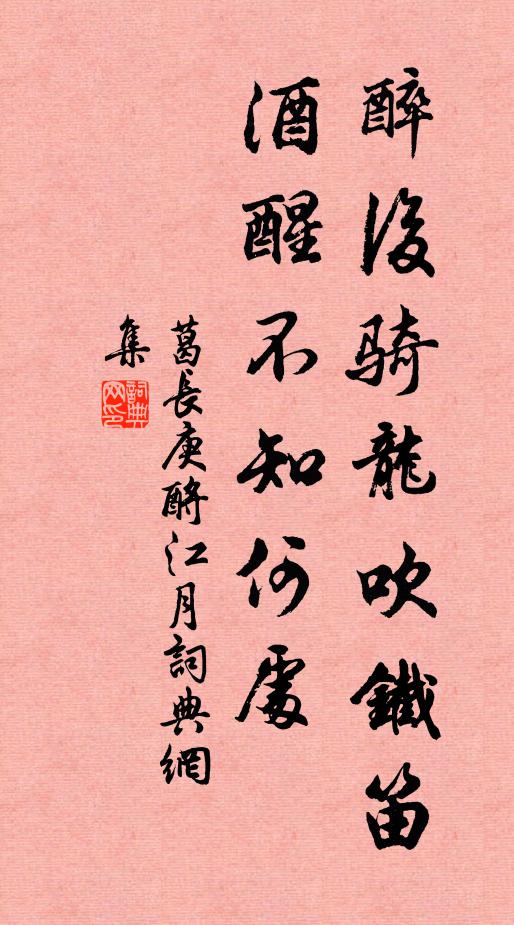 醉後騎龍吹鐵笛
酒醒不知何處
葛長庚酹江月詞典網
集
詞典
网印